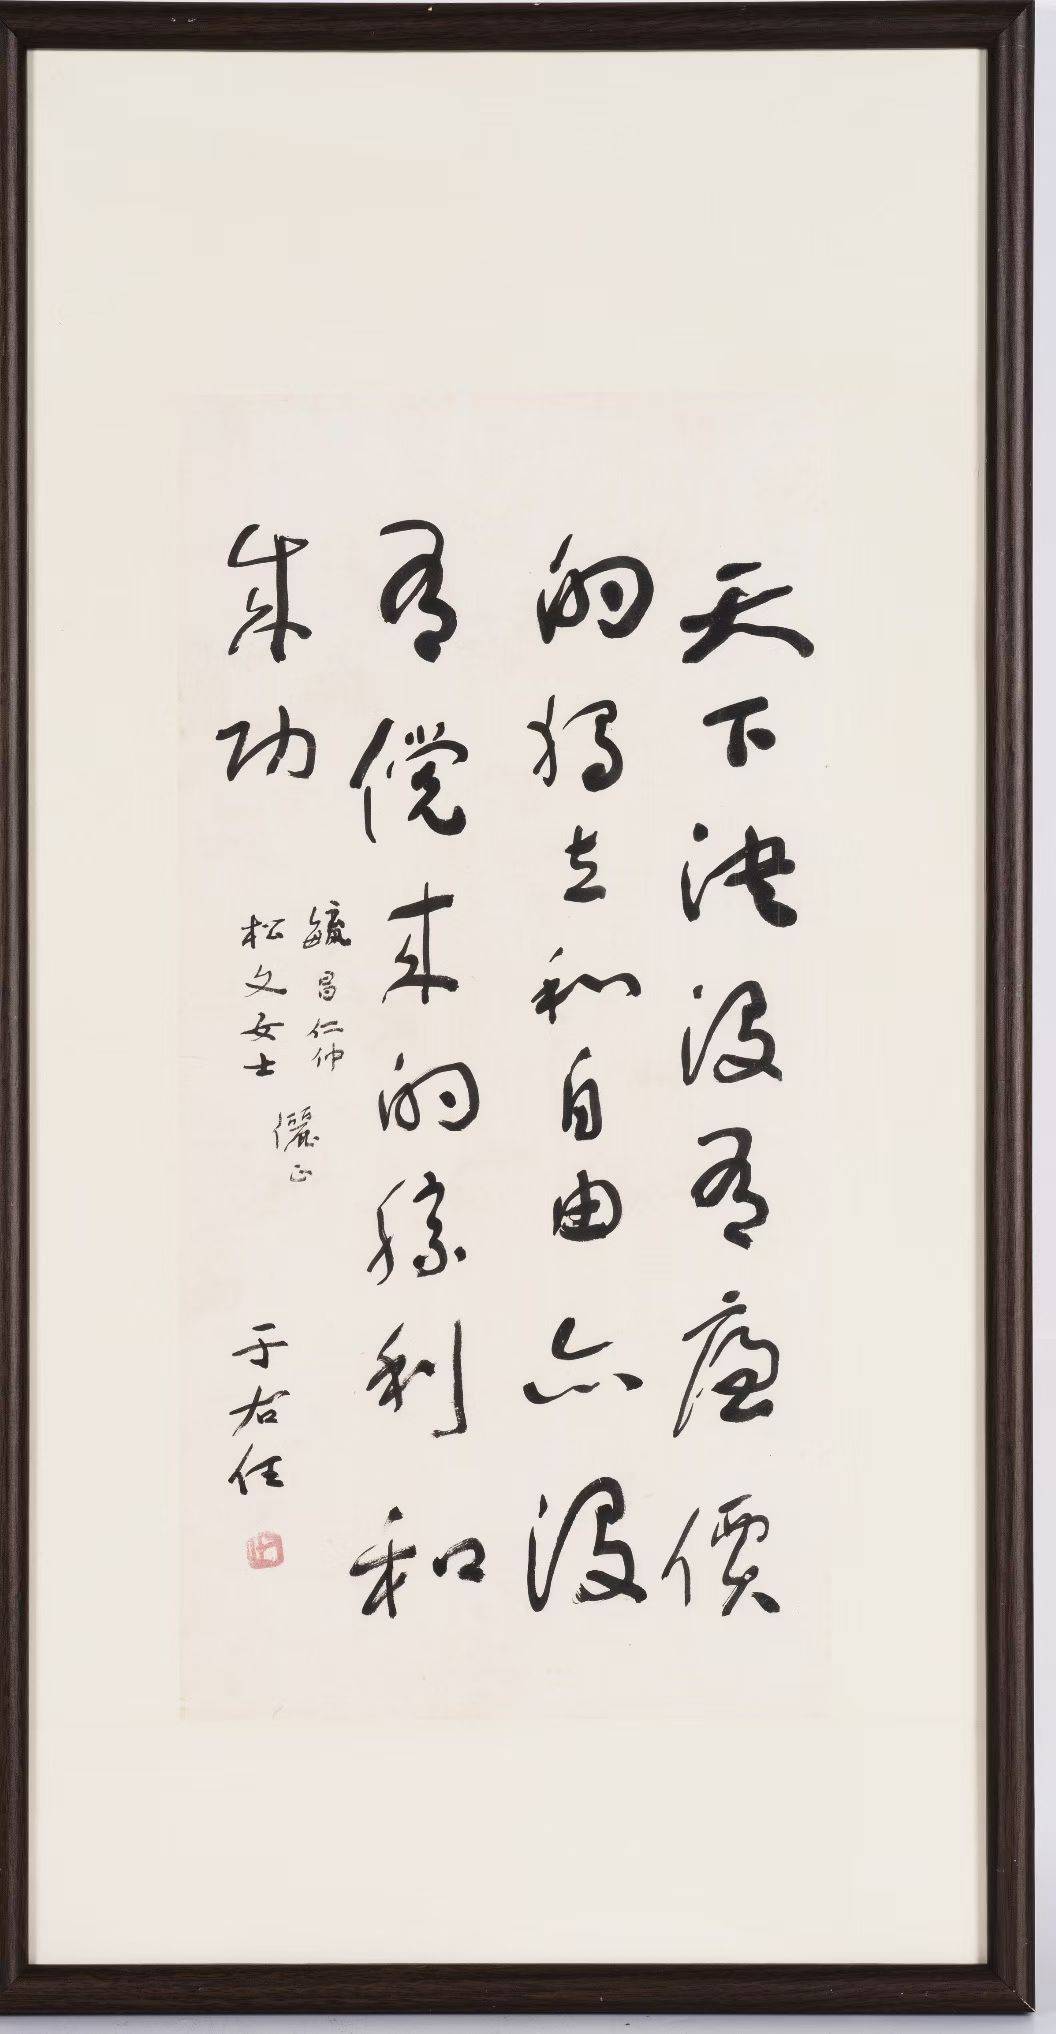 天下決沒有廉價
的獨立和自由亦沒
有儻來的勝利和
成功
毓昌仁仲
松文女士
儷正
于右任